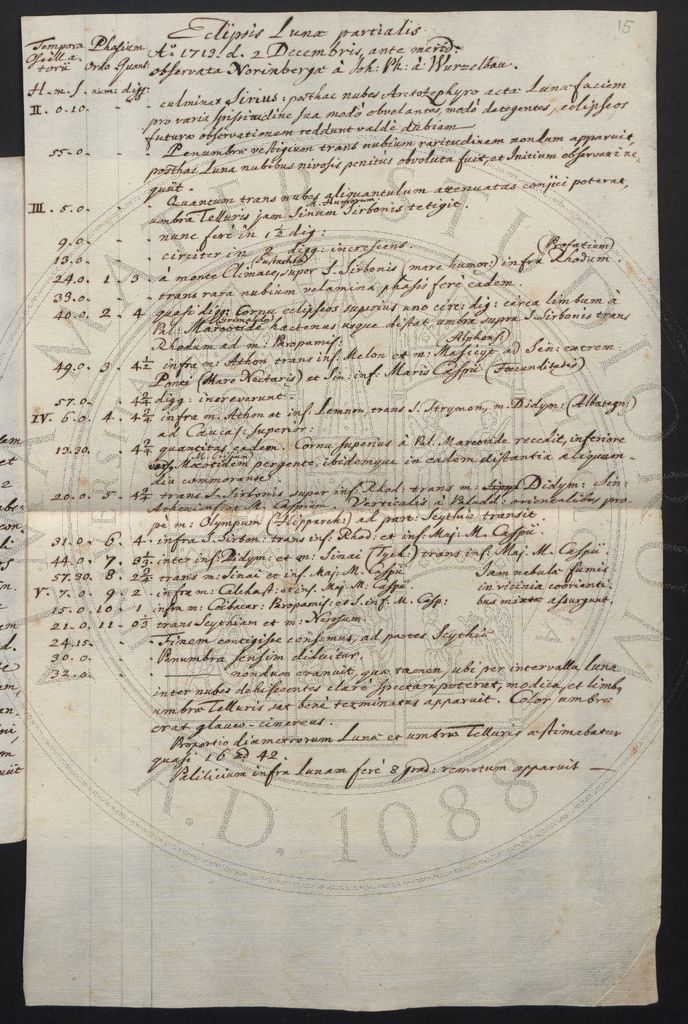 15
Eclipsis Lunæ partialis
Tempora Phasium Aº 1713! d. 2 Decembris, ante merid:
Oscilla- Ordo Quant: observata Norinbergæ à Joh: Ph: à Wurzelbau.
torii
H. m. s. num: digg:
II. 0. 10 - - . culminat Sirius: posthac nubes Arctozephyro actæ Lunæ faciem
pro varia spissitudine sua modò obvelantes, modò detegentes, eclipseos
futuræ observationem reddunt valde dubiam
55. 0. - - . Penumbræ vestigium trans nubium raritudinem nondum apparuit,
posthac Luna nubibus nivosis penitus obvoluta fuit, et Initium observari ne-
quiit.
Quantum trans nubes aliquantulum attenuatas conjici poterat,
M. Humorum
III. 5. 0. - - umbra Telluris jam Sinum Sirbonis tetigit.
9. 0. - - . nunc ferè in 1½ dig:
13. 0. - - . circiter in 2 digg: increscens. (Profatium)
24. 0. 1 . 3 . à monte Climace, super S. Sirbonis (mare humor:) infra Rhodum.
33. 0. - - . trans rara nubium velamina phasis ferè eadem.
40. 0. 2 . 4 . quasi digg: Cornu eclipseos superius uno circ: dig: circa limbum à
Pal: Mareotide hactenus usque distat umbra supra S. Sirbonis trans
Rhodum ad m: Paropamis: (Alphons:)
49. 0. 3 . 4½ infra m: Athon trans inf: Melon et m: Masicyt ad Sin: extrem.
Ponti (Mare Nectaris) et Sin: inf: Maris Caspii (Foecunditatis)
57. 0. - . 4¾ digg: increverunt.
IV. 6. 0. 4 . 4¾ infra m. Athon et inf: Lemnon, trans S. Strymon, m. Didym: (Albategn:)
ad Caucas: superior:
13. 30. - . 4¾ quantitas eadem. Cornu superius à Pal. Mareotide recedit, inferiore
M. Crisium
Mæotidem pergente, ibidemque in eadem distantia aliquam-
diu commorante.
20. 0. 5 . 4¼ trans S. Sirbonis super inf: Rhod: trans m: Didym: Sin:
Athen: inf: et M. Caspium. Verticalis à Paludd: orientalibus pro-
pe m: Olympum (Hipparch:) ad part: Scythiæ transit
31. 0. 6 . 4 . infra S. Sirbon: trans inf: Rhod: et inf: Maj: M. Caspii.
44. 0. 7 . 3⅓ inter inf: Didym: et m: Sinai (Tych:) trans inf: Maj. M. Caspii.
57. 30. 8 . 2¾ trans m: Sinai et inf: Maj: M. Caspii. Jam nebula fumis
V. 7. 0. 9 . 2 . infra m: Calchast: et inf: Maj. M: Caspii. in vicinia coorienti
15. 0. 10 . 1 . infra m: Coibacar: Paropamis: et S. inf. M. Casp: bus mixta assurgunt.
21. 0. 11 . 0⅓ trans Scythiam et m: Nerosum
24. 15. - . Finem contigisse censemus, ad partes Scythiæ
30. 0. - . Penumbra sensim diluitur.
32. 0. - . nondum evanuit, quæ tamen, ubi per intervalla Luna
inter nubes dehiscentes clarè spectari poterat, modica, et limb,
umbræ Telluris sat benè terminatus apparuit. Color umbræ
erat glauco-cinereus.
Proportio diametrorum Lunæ et umbræ Telluris æstimabatur
quasi 16 ad 42.
Palilicium infra Lunam ferè 8 grad: remotum apparuit —
A.D. 1088